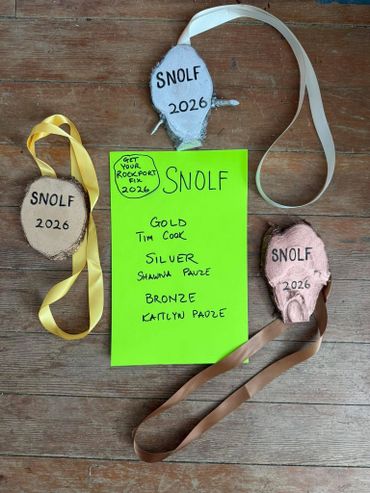 SNOLF
2026
SNOLF
2026
GET
YOUR
ROCKPORT
FIX
2026
SNOLF
GOLD
TIM COOK
SILVER
SHAWNA PAUZE
BRONZE
KAITLYN PAUZE
SNOLF
2026